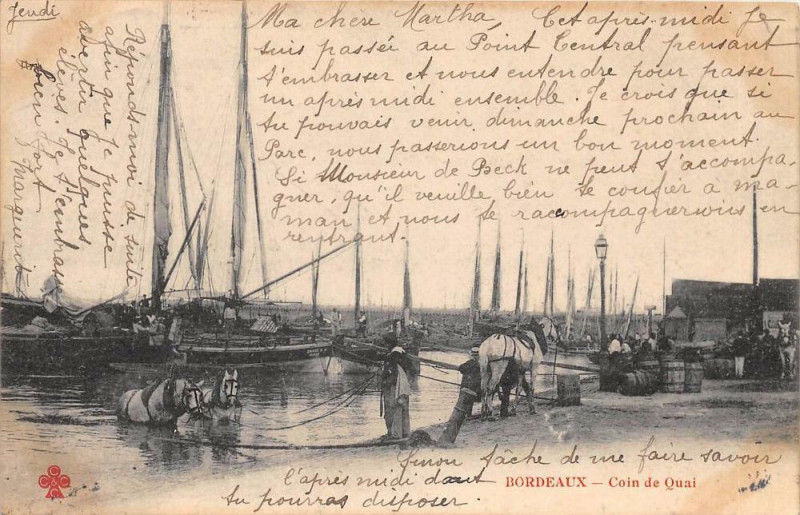 Jeudi
Ma chère Martha Cet après-midi Je
suis passée au Point Central pensant
t'embrasser et nous entendre pour passer
un après midi ensemble. Je crois que si
tu pouvais venir dimanche prochain au
Parc, nous passerions un bon moment.
Si Monsieur de Beck ne peut t'accompa-
gner, qu'il veuille bien te confier à ma-
man et nous te racompagnerions en
rentrant.
Sinon tâche de me faire savoir
l'après midi dont
tu pourras disposer.
Réponds-moi de suite
afin que je puisse
avertir quelques
élèves. Je t'embrasse
bien fort
Marguerite
BORDEAUX – Coin de Quai
C C C C